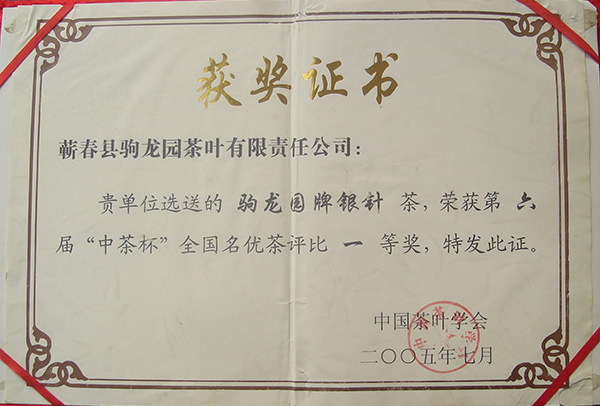 获奖证书
蕲春县驹龙园茶叶有限责任公司：
贵单位选送的 驹龙园牌银针 茶，荣获第 六
届“中茶杯”全国名优茶评比 一 等奖，特发此证。
中国茶叶学会
二〇〇五年七月